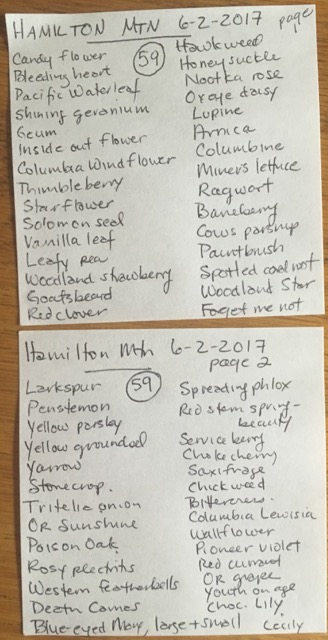 HAMILTON MTN 6-2-2017 page 1
59
Candy flower
Bleeding heart
Pacific Waterleaf
Shining geranium
Geum
Inside out flower
Columbia Windflower
Thimbleberry
Starflower
Solomon seal
Vanilla leaf
Leafy pea
Woodland strawberry
Goatsbeard
Red clover
Hawkweed
Honeysuckle
Nootka rose
Oxeye daisy
Lupine
Arnica
Columbine
Miners lettuce
Ragwort
Baneberry
Cows parsnip
Paintbrush
Spotted coral root
Woodland Star
Forget me not
Hamilton Mtn 6-2-2017
page 2
59
Larkspur
Penstemon
Yellow parsley
Yellow groundsel
Yarrow
Stonecrop.
Tritelia onion
OR Sunshine
Poison Oak
Rosy plectritis
Western featherbells
Death Camas
Blue-eyed Mary, large + small
Spreading phlox
Red stem spring-
beauty
Service berry
Chokecherry
Saxifrage
Chickweed
Bittercress.
Columbia Lewisia
Wallflower
Pioneer violet
Red currant
OR grape
Youth on age
Choc. Lily
Cecily